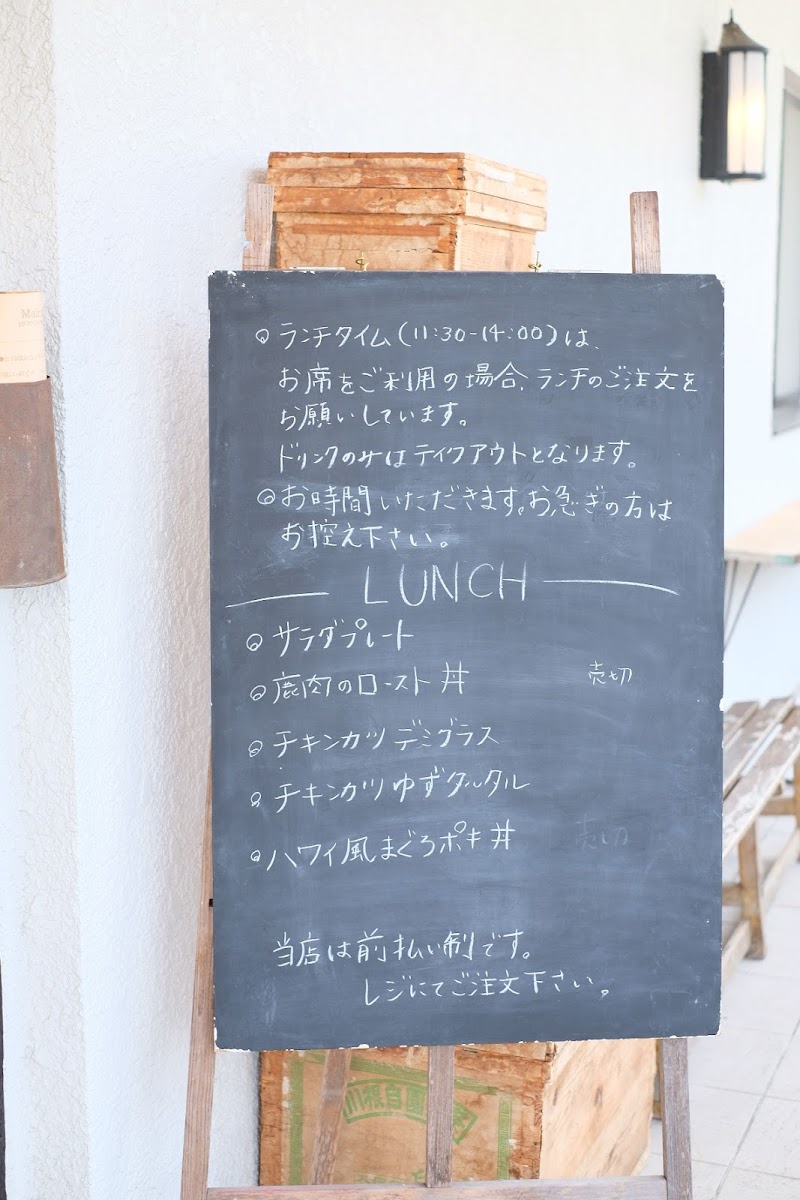 ◎ランチタイム(11:30-14:00)は、
お席をご利用の場合、ランチのご注文を
お願いしています。
ドリンクのみはテイクアウトとなります。
◎お時間いただきます。お急ぎの方は
お控え下さい。
LUNCH
◎サラダプレート
◎鹿肉のロースト丼 売切
◎チキンカツデミグラス
◎チキンカツゆずタルタル
◎ハワイ風まぐろポキ丼 売切
当店は前払い制です。
レジにてご注文下さい。